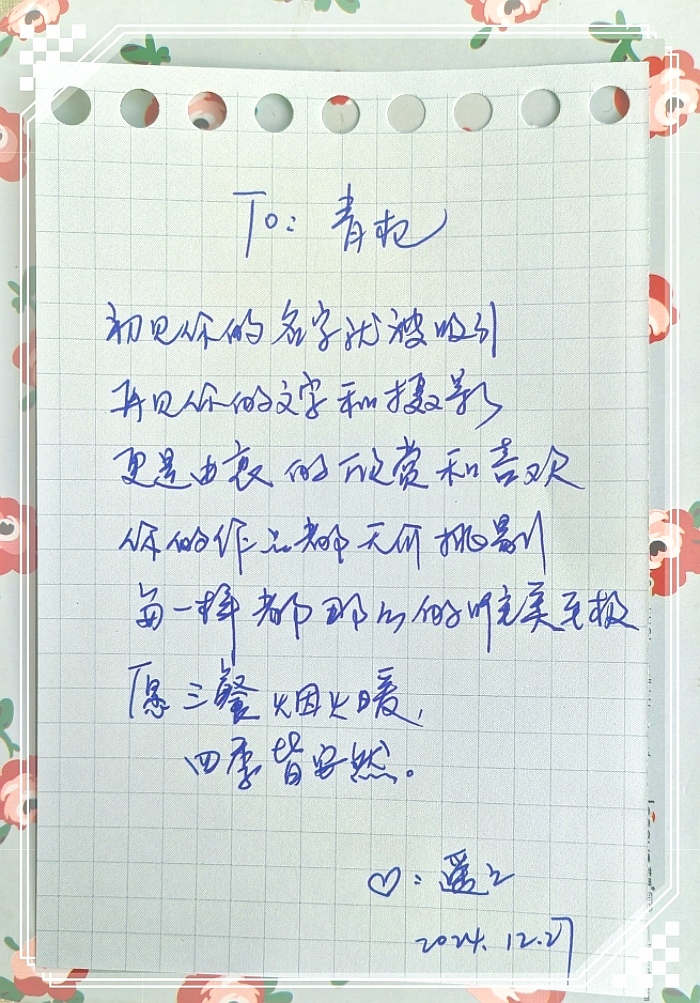 To: 青杞
初见你的名字就被吸引
再见你的文字和摄影
更是由衷的欣赏和喜欢
你的作品都无可挑剔
每一样都那么的完美至极
愿三餐烟火暖,
四季皆安然。
♡: 遥之
2024.12.27